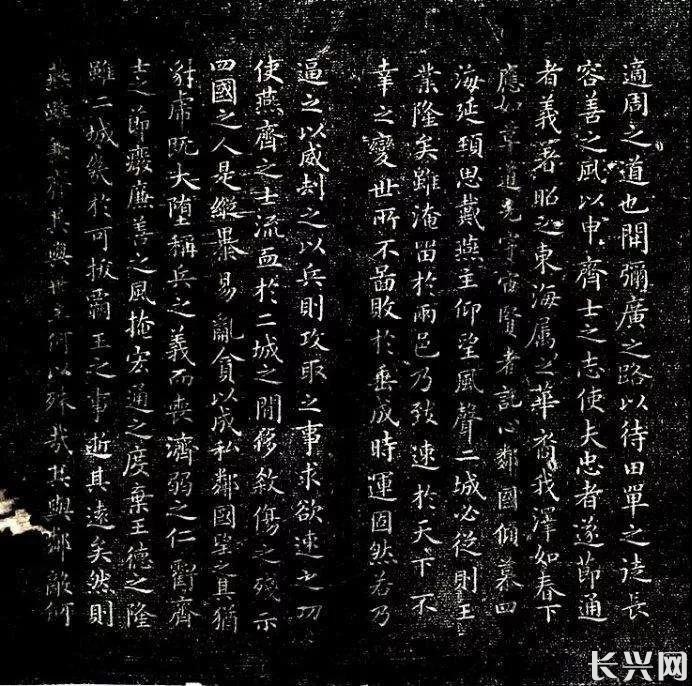 適周之道也開彌廣之路以待田單之徒長
容善之風以申齊士之志使夫忠者遂節通
者義著昭之東海屬之華裔我澤如春下
應如草道光宇宙賢者託心鄰國傾慕四
海延頸思戴燕主仰望風聲二城必從則王
業隆矣雖淹留於兩邑乃致速於天下不
幸之變世所不圖敗於垂成時運固然若乃
逼之以威劫之以兵則攻取之事求欲速之功
使燕齊之士流血於二城之間侈殺傷之殘示
四國之人是縱暴易亂貪以成私鄰國望之其猶
豺虎既大墮稱兵之義而喪濟弱之仁虧齊
士之節廢廉善之風掩宏通之度棄王德之隆
雖二城幾於可拔霸王之事逝其遠矣然則
燕雖兼齊其與世主何以殊哉其與鄰敵何
长兴网